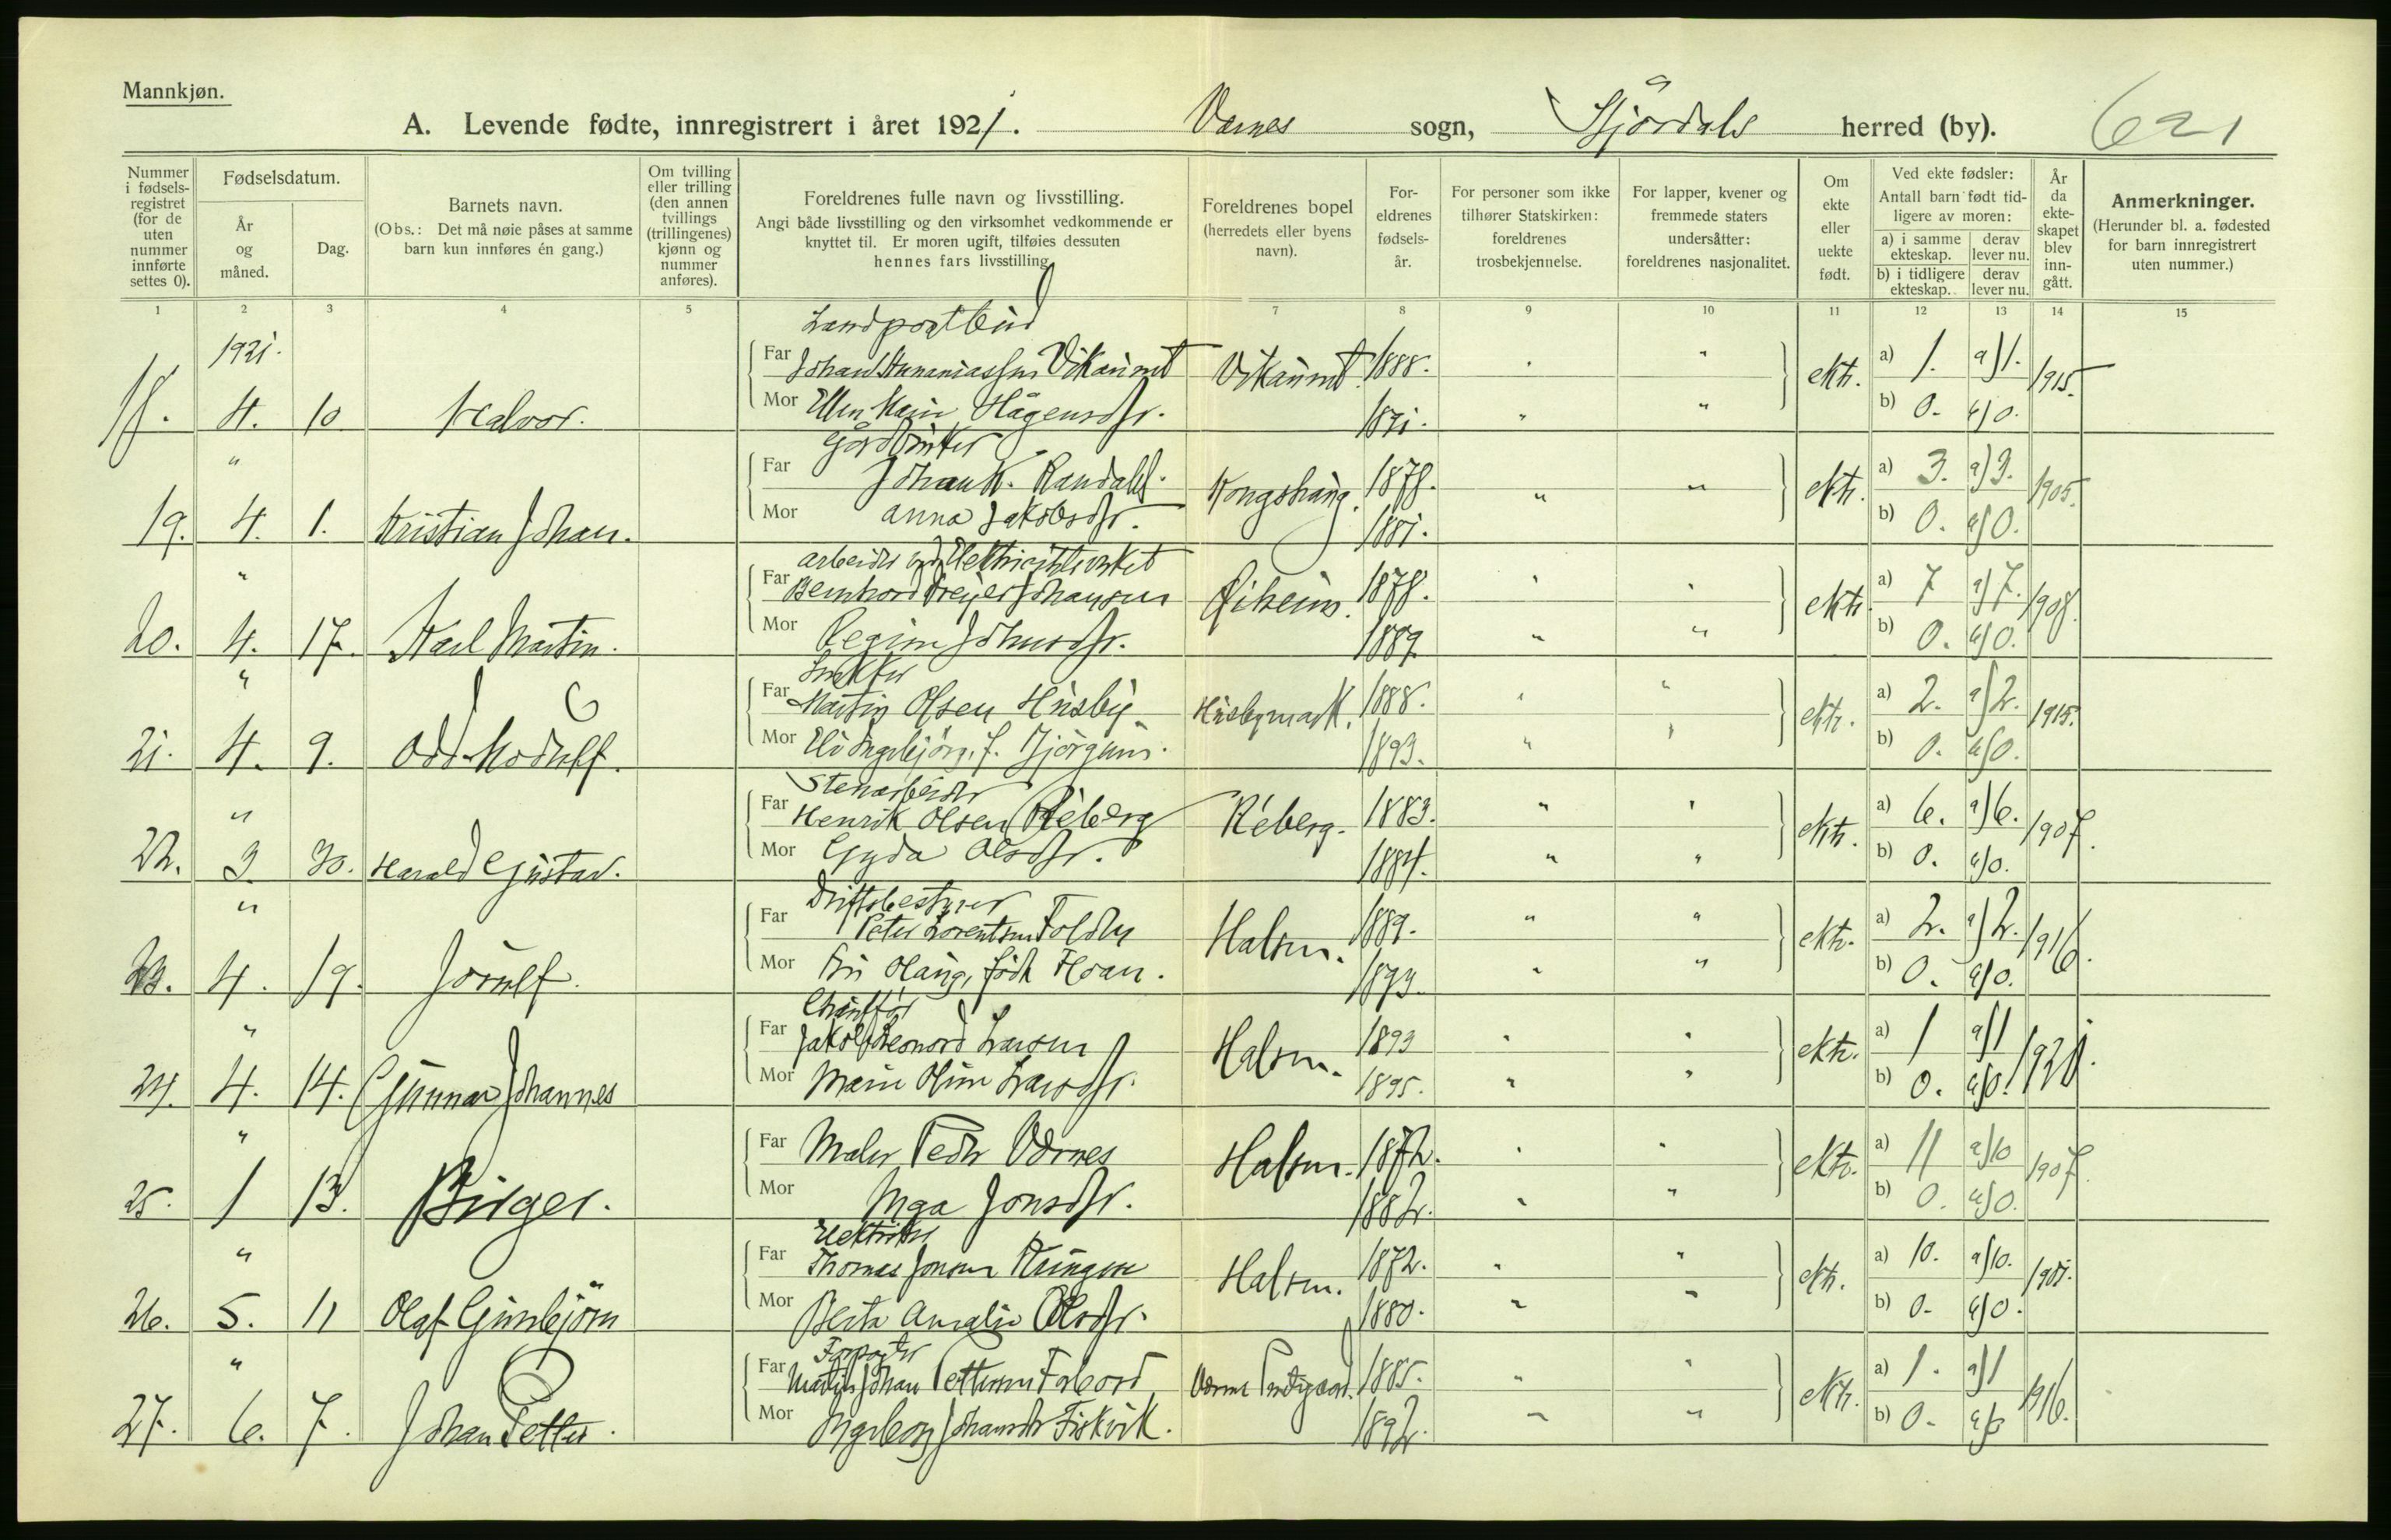 Mannkjøn.
A. Levende fødte, innregistrert i året 1921. Værnes sogn, Stjørdals herred (by). 621
Nummer i fødsels-registret (for de uten nummer innførte settes 0).
Fødselsdatum.
År og måned.
Dag.
Barnets navn.
(Obs.: Det må nøie påses at samme barn kun innføres én gang.)
Om tvilling eller trilling (den annen tvillings (trillingenes) kjønn og nummer anføres).
Foreldrenes fulle navn og livsstilling.
Angi både livsstilling og den virksomhet vedkommende er knyttet til. Er moren ugift, tilføies dessuten hennes fars livsstilling.
Foreldrenes bopel (herredets eller byens navn).
For-eldrenes fødsels-år.
For personer som ikke tilhører Statskirken: foreldrenes trosbekjennelse.
For lapper, kvener og fremmede staters undersåtter: foreldrenes nasjonalitet.
Om ekte eller uekte født.
Ved ekte fødsler:
Antall barn født tid-ligere av moren:
a) i samme ekteskap. derav lever nu.
b) i tidligere ekteskap. derav lever nu.
År da ekte-skapet blev inn-gått.
Anmerkninger.
(Herunder bl. a. fødested for barn innregistrert uten nummer.)
1 2 3 4 5 7 8 9 10 11 12 13 14 15
1921.
Landpostbud
Far Johan Ananiassen Vikaunet Vikaunet. 1888. " " ekte. a) 1. a) 1. 1915.
18. 4. 10 Halvor. Mor Ellen Marie Hågensdtr. 1891. " " b) 0. b) 0.
" Gårdbruker
Far Johan K. Randahl. Kongshaug. 1878. " " ekte. a) 3. a) 3. 1905.
19. 4. 1. Kristian Johan. Mor Anna Jakobsdtr. 1881. b) 0. b) 0.
" arbeider ved Elektricitetsverket
Far Bernhard Dreyer Johansen Øiheim. 1878. " " ekte. a) 7 a) 7. 1908.
20. 4. 17. Karl Martin. Mor Regine Johnsdtr. 1889 " " b) 0. b) 0.
"
Far Martin Olsen Husby Husbymark. 1888. " " ekte. a) 2. a) 2. 1915.
21. 4. 9. Odd Modulf. Mor Eli Ingebjørg, f. 1893. " " b) 0. b) 0.
" Stenarbeider
Far Henrik Olsen Réberg Réberg. 1883. " " ekte. a) 6. a) 6. 1907.
22. 3. 30. Harald Gustav. Mor Gyda Olsdtr. 1884. " " b) 0. b) 0.
" Driftsbestyrer
Far Peter Lorentsen Folden Halsen. 1889. " " ekte. a) 2. a) 2. 1916.
23. 4. 19. Jorulf. Mor født Hoan. 1893. " " b) 0. b) 0.
" Chauffør
Far Jakob Leonard Larsen Halsen. 1893 " " ekte. a) 1 a) 1 1920.
24. 4. 14. Gunnar Johannes Mor Marie Oline Larsdtr. 1895. " " b) 0. b) 0.
"
Far Maler Peder Værnes Halsen. 1872. " " ekte. a) 11 a) 10 1907.
25. 1 13. Birger. Mor Inga Jonsdtr. 1882. " " b) 0. b) 0.
" Elektriker
Far Thomas Jonsen Halsen. 1872. " " ekte. a) 10. a) 10. 1901.
26. 5. 11 Olaf Gunbjörn Mor Berta Amalie Olsdtr. 1880. " " b) 0. b) 0.
" Forpagter
Far Martin Johan Pettersen Forbord Værnes Prestegaard. 1885. " " ekte. a) 1. a) 1 1916.
27. 6. 7. Johan Petter. Mor Ingeborg Johansdtr Fiskvik. 1892. " " b) 0. b) 0